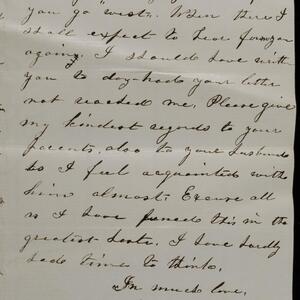 you go west. When there I
shall expect to hear from you
again. I should have with
you to day had your letter
not reached me. Please give
my kindest regards to your
parents, also to your husband
as I feel acquainted with
him almost. Excuse all
as I have penned this in the
greatest haste. I have hardly
had time to think.
In much love,